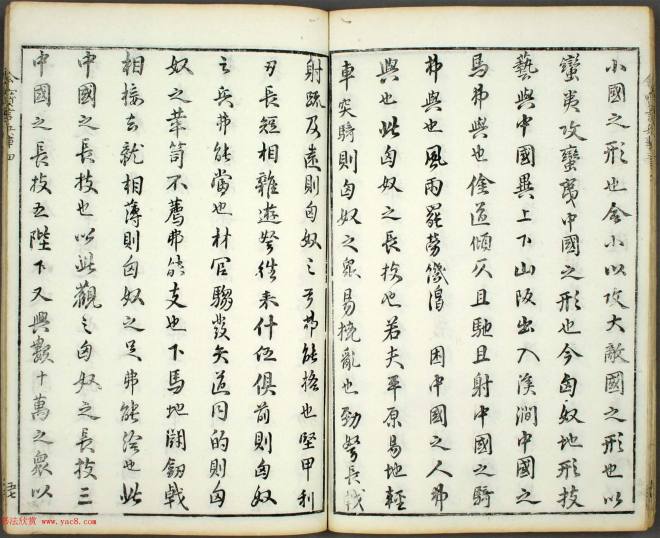 小國之形也合小以攻大敵國之形也以
蠻夷攻蠻夷中國之形也今匈奴地形技
藝與中國異上下山阪出入溪澗中國之
馬弗與也險道傾仄且馳且射中國之騎
弗與也風雨罷勞饑渴困中國之人弗
與也此匈奴之長技也若夫平原易地輕
車突騎則匈奴之眾易撓亂也勁弩長戟
射疏及遠則匈奴之弓弗能格也堅甲利
刃長短相雜遊弩往来什伍俱前則匈奴
之兵弗能當也材官騶發矢道同的則匈
奴之革笥木薦弗能支也下馬地鬪劔戟
相接去就相薄則匈奴之足弗能給也此
中國之長技也以此觀之匈奴之長技三
中國之長技五陛下又興數十萬之眾以
书法欣赏 www.yac8.com